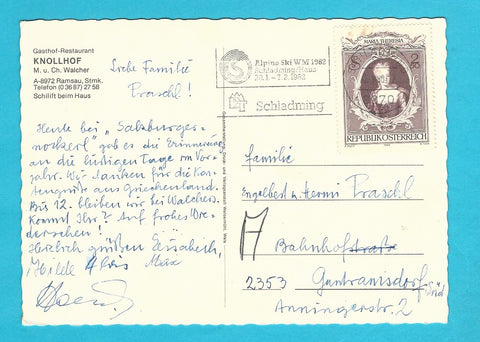 Gasthof-Restaurant
KNOLLHOF
M. u. Ch. Walcher
A-8972 Ramsau, Stmk.
Telefon (0 36 87) 27 58
Schilift beim Haus
Liebe Familie
Praschl!
Heute bei „Salzburger-
nockerl" gab es die Erinnerung
an die lustigen Tage im Vor-
jahr. Wir danken für die Kar-
tengrüße aus Griechenland.
Bis 12. bleiben wir bei Walchers.
Kommt Ihr? Auf frohes Wie-
dersehen!
Herzlich grüßen Elisabeth,
Hilde Alois Max
Alpine Ski WM 1982
Schladming/Haus
28.1. - 7.2.1982
Schladming
MARIA THERESIA
S 2
REPUBLIK ÖSTERREICH
Familie
Engelbert u. Hermi Praschl
A
Bahnhofstraße
2353 Guntramsdorf Süd
Anningerstr. 2